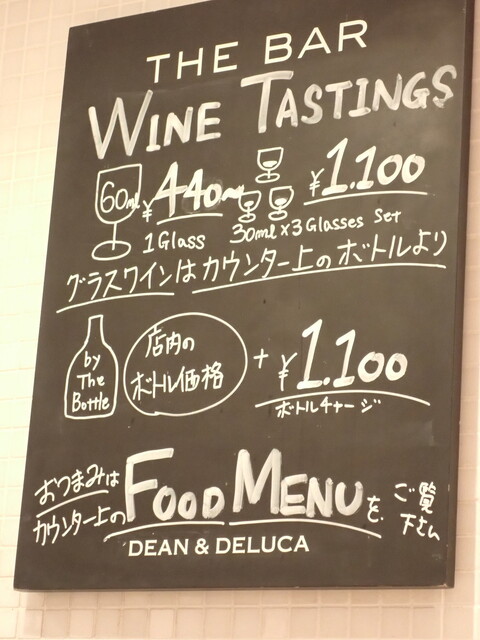 THE BAR
WINE TASTINGS
60ml ¥440〜 ¥1.100
1 Glass 30ml×3 Glasses Set
グラスワインはカウンター上のボトルより
by The Bottle
店内の
ボトル価格
+ ¥1.100
ボトルチャージ
おつまみは
カウンター上のFOOD MENUを
ご覧
下さい
DEAN & DELUCA